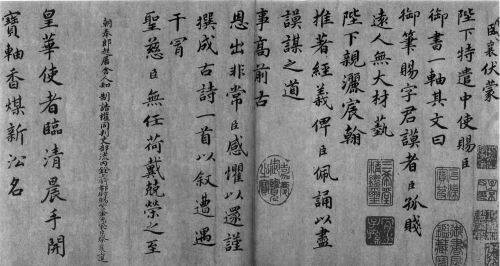 臣襄伏蒙
陛下特遣中使賜臣
御書一軸其文曰
御筆賜字君謨者臣孤賤
遠人無大材藝
陛下親灑宸翰
推著經義俾臣佩誦以盡
謨謀之道
事高前古
恩出非常臣感懼以還謹
撰成古詩一首以叙遭遇
干冒
聖慈臣無任荷戴兢榮之至
朝奉郎起居舍人知 制誥權同判吏部流內銓
皇華使者臨清晨手開
寶軸香煤新沿名